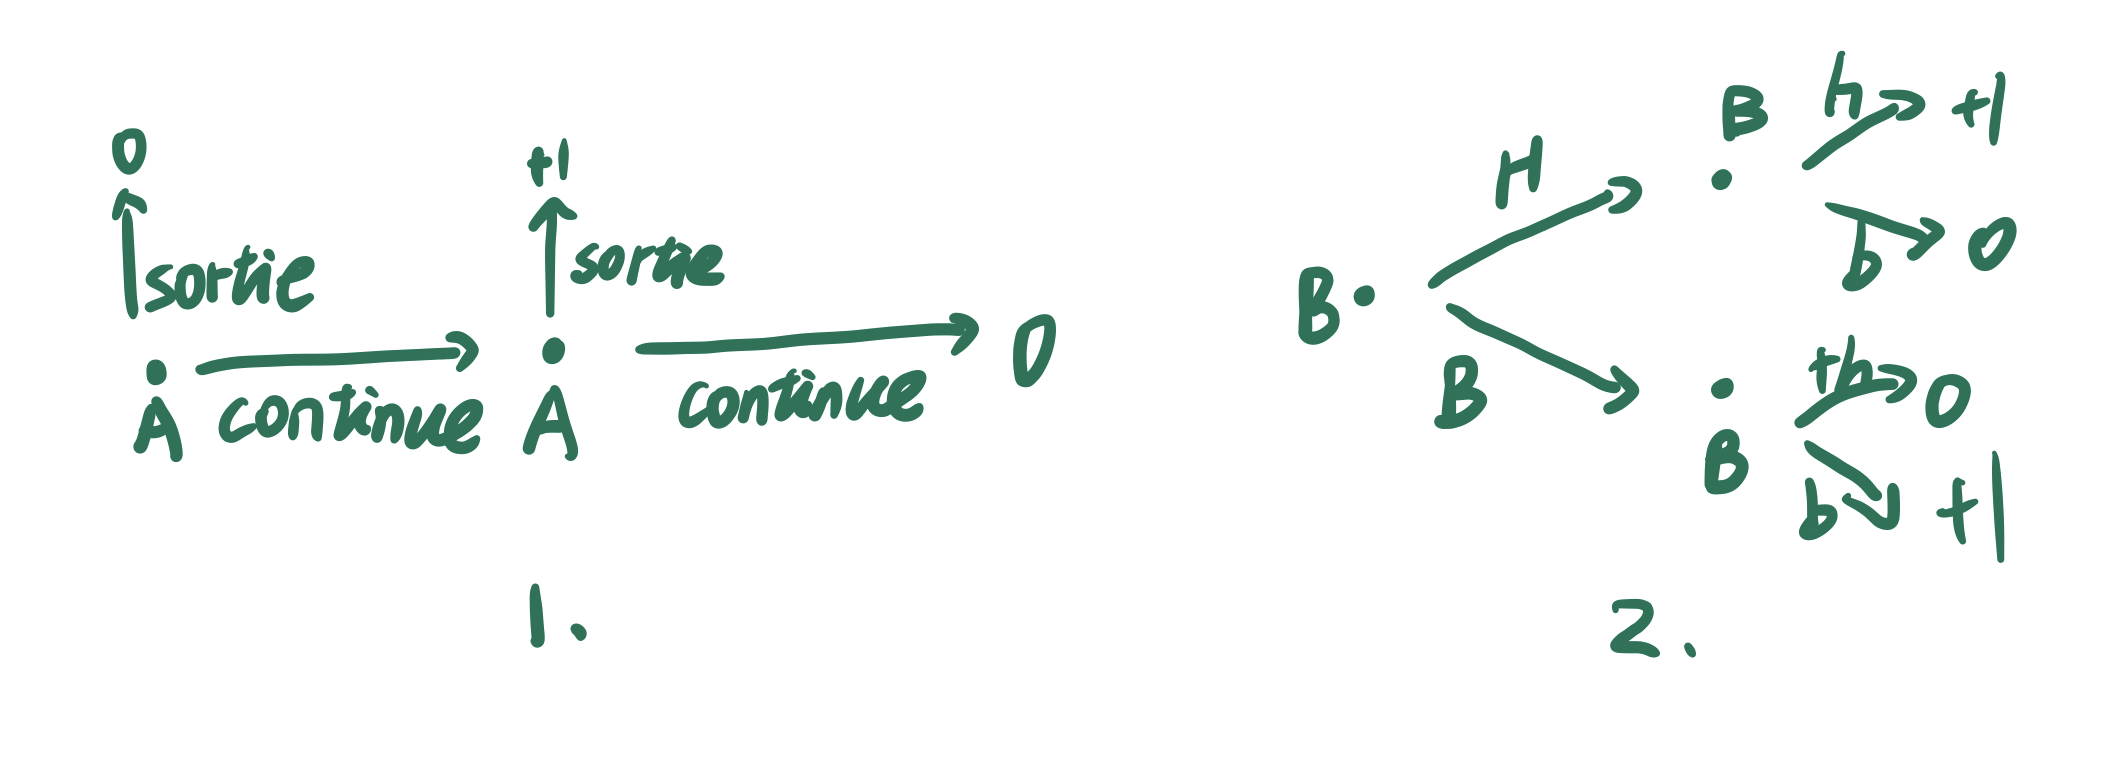 0
sortie
A
continue
+1
sortie
A
continue
0
1.
B
H
B
h
+1
b
0
B
B
th
0
b
+1
2.